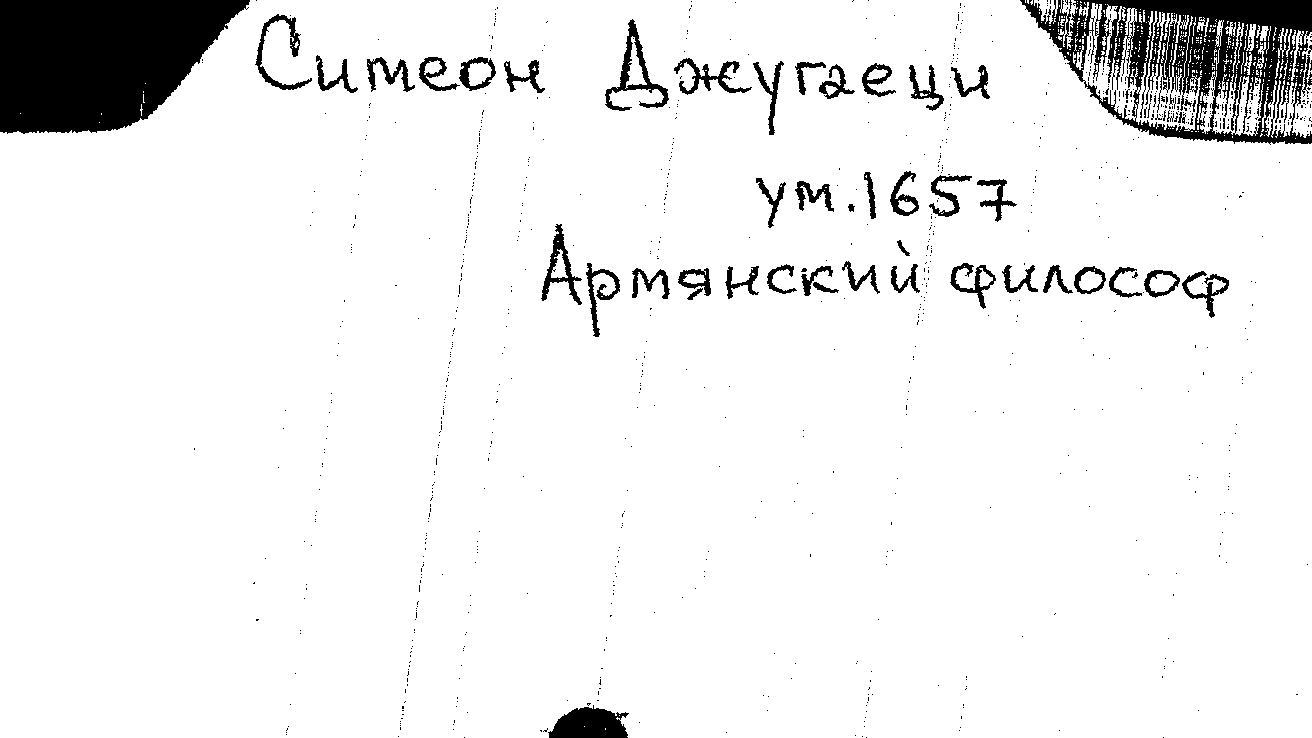 Симеон Джугаеци
ум. 1657
Армянский философ